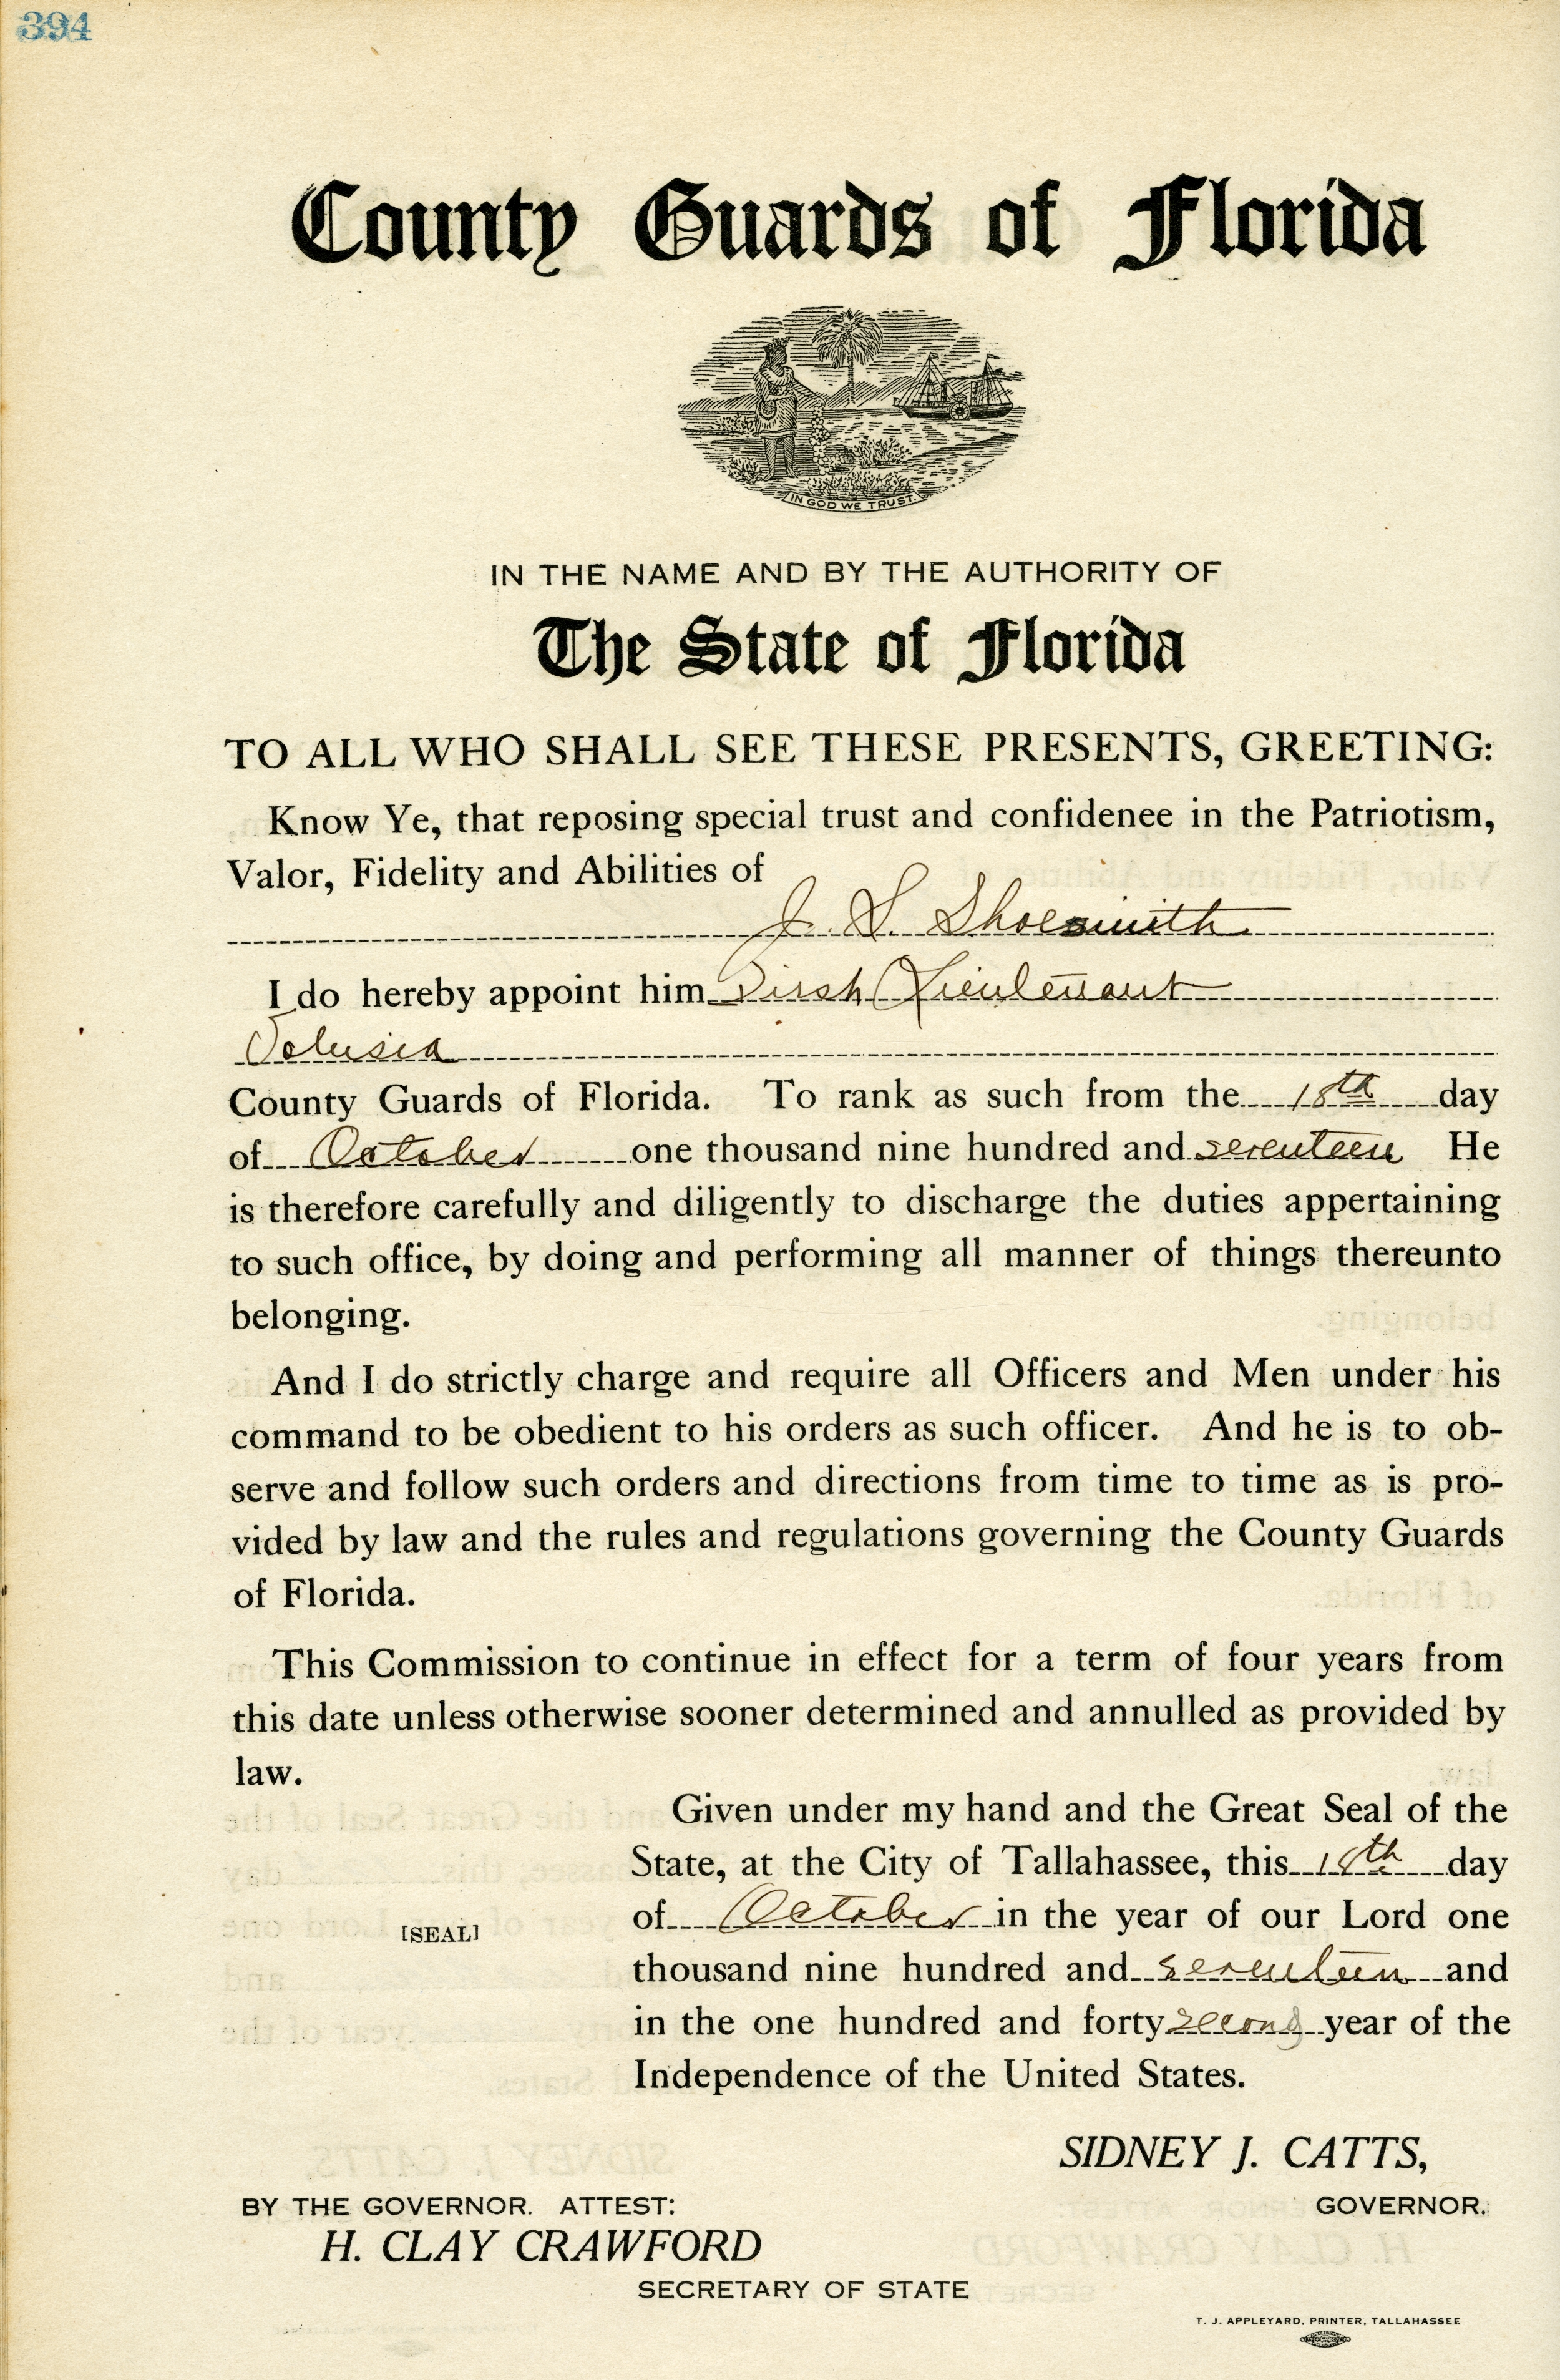 394
County Guards of Florida
IN GOD WE TRUST.
IN THE NAME AND BY THE AUTHORITY OF
The State of Florida
TO ALL WHO SHALL SEE THESE PRESENTS, GREETING:
Know Ye, that reposing special trust and confidenee in the Patriotism,
Valor, Fidelity and Abilities of
J. S. Shoesmith
I do hereby appoint him First Lieutenant
Volusia
County Guards of Florida. To rank as such from the 18th day
of October one thousand nine hundred and seventeen He
is therefore carefully and diligently to discharge the duties appertaining
to such office, by doing and performing all manner of things thereunto
belonging.
And I do strictly charge and require all Officers and Men under his
command to be obedient to his orders as such officer. And he is to ob-
serve and follow such orders and directions from time to time as is pro-
vided by law and the rules and regulations governing the County Guards
of Florida.
This Commission to continue in effect for a term of four years from
this date unless otherwise sooner determined and annulled as provided by
law.
Given under my hand and the Great Seal of the
State, at the City of Tallahassee, this 18th day
of October in the year of our Lord one
[SEAL]
thousand nine hundred and seventeen and
in the one hundred and forty second year of the
Independence of the United States.
SIDNEY J. CATTS,
BY THE GOVERNOR. ATTEST: GOVERNOR.
H. CLAY CRAWFORD
SECRETARY OF STATE
T. J. APPLEYARD, PRINTER, TALLAHASSEE